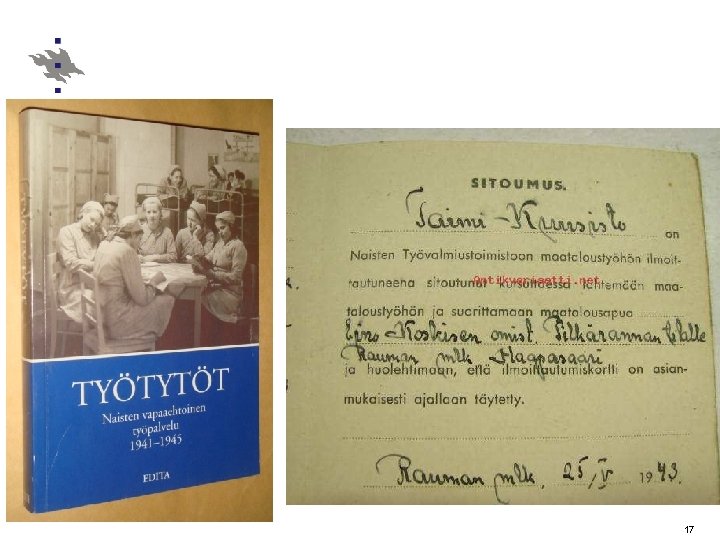 TYÖTYTÖT
Naisten vapaaehtoinen
työpalvelu
1941–1945
EDITA
SITOUMUS.
Taimi Kuusisto on
Naisten Työvalmiustoimistoon maataloustyöhön ilmoit-
tautuneena sitoutunut kutsuttaessa lähtemään maa-
Antikvariaatti.net
taloustyöhön ja suorittamaan maatalousapua
Eino Koskisen omist. talle
Rauman mlk
ja huolehtimaan, että ilmoittautumiskortti on asian-
mukaisesti ajallaan täytetty.
Rauman mlk, 25/V 1943.
17